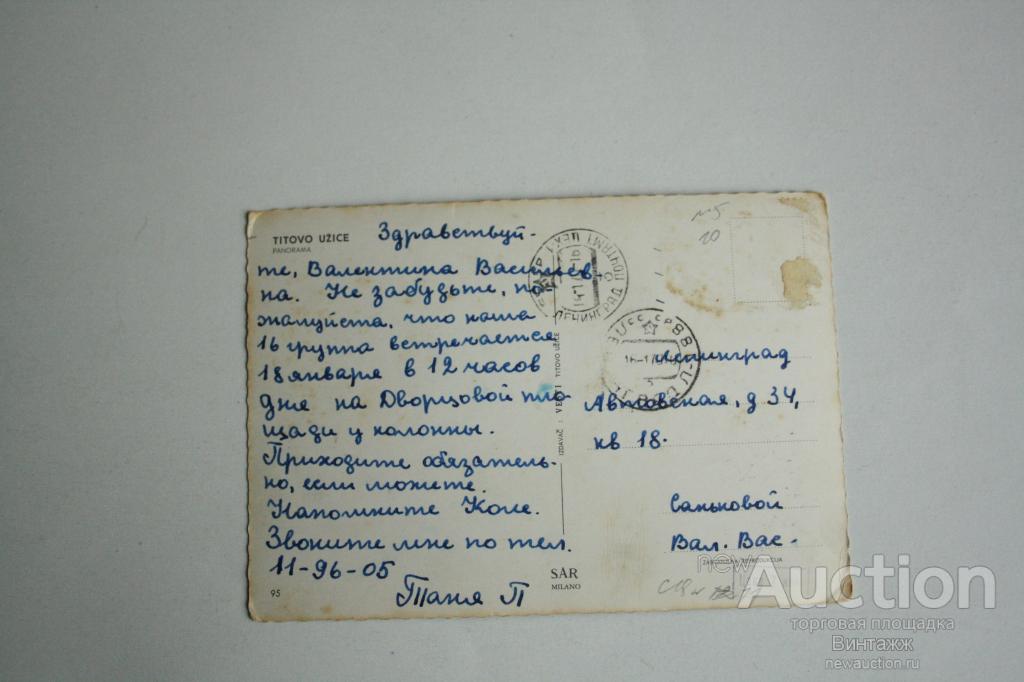 TITOVO UŽICE
PANORAMA
Здравствуй-
те, Валентина Васильев-
на. Не забудьте, по-
жалуйста, что наша
16 группа встречается
18 января в 12 часов
дня на Дворцовой пло-
щади у колонны.
Приходите обязатель-
но, если можете.
Напомните Коле.
Звоните мне по тел.
11-96-05
Таня П
95
IZDAVAČ: VESTI TITOVO UŽICE
SAR
MILANO
10
ЛЕНИНГРАД
СССР
Ленинград
Автовская, д 34,
кв 18.
Саньковой
Вал. Вас-
ZABRANJENA REPRODUKCIJA
newAuction
торговая площадка
Винтажж
newauction.ru